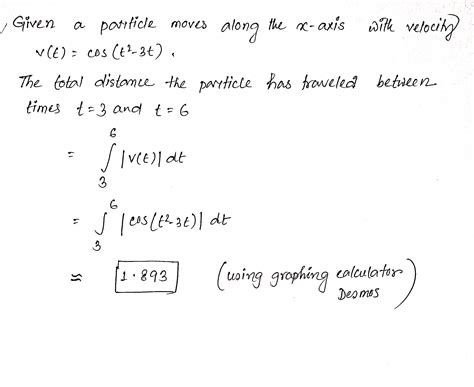 Given a particle moves along the x-axis with velocity
v(t) = cos(t²-3t).
The total distance the particle has traveled between
times t=3 and t=6
= ∫₃⁶ |v(t)| dt
= ∫₃⁶ |cos(t²-3t)| dt
≈ 1.893 (using graphing calculator
Desmos)